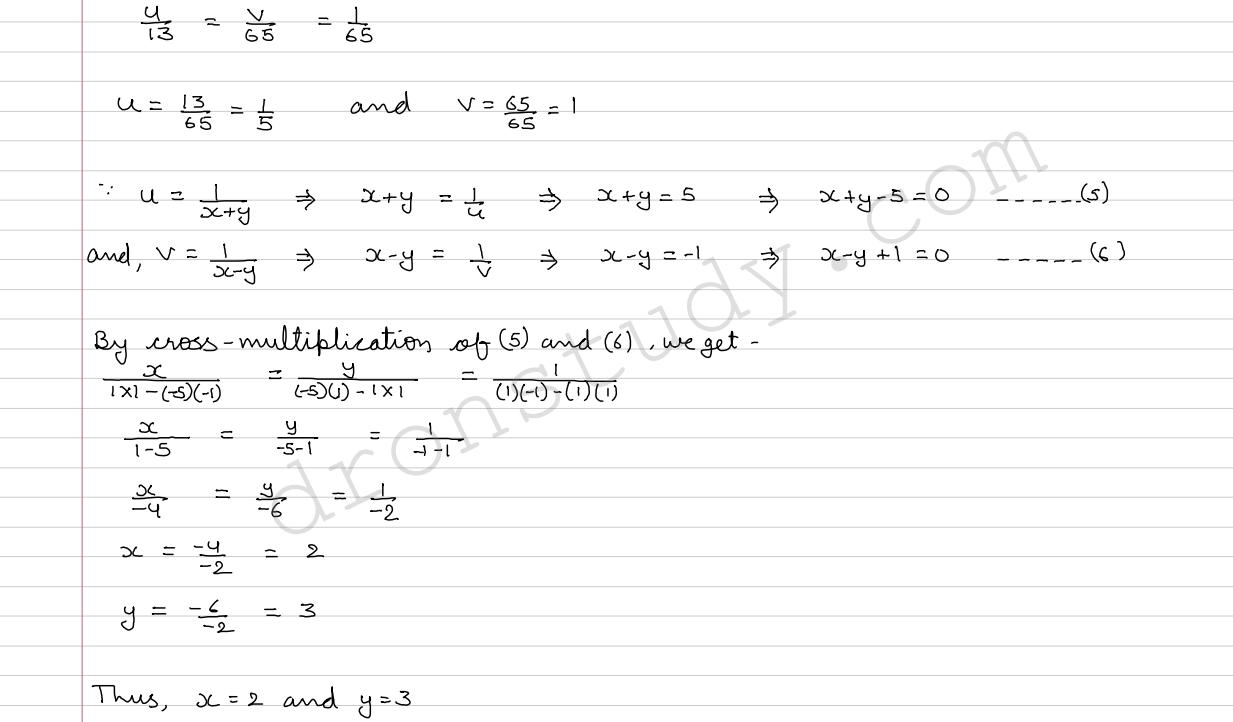 u/13 = v/65 = 1/65
u = 13/65 = 1/5 and v = 65/65 = 1
∵ u = 1/(x+y) ⇒ x+y = 1/u ⇒ x+y = 5 ⇒ x+y-5 = 0 ------(5)
and, v = 1/(x-y) ⇒ x-y = 1/v ⇒ x-y = -1 ⇒ x-y+1 = 0 -----(6)
By cross-multiplication of (5) and (6), we get -
x/(1×1-(-5)(-1)) = y/((-5)(1)-1×1) = 1/((1)(-1)-(1)(1))
x/(1-5) = y/(-5-1) = 1/(-1-1)
x/-4 = y/-6 = 1/-2
x = -4/-2 = 2
y = -6/-2 = 3
Thus, x = 2 and y = 3
dronstudy.com